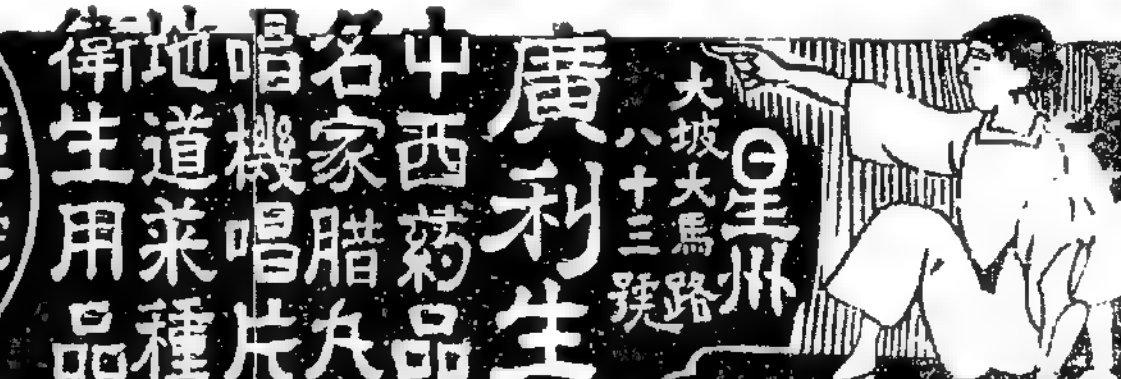 星州
大坡大馬路
八十三號
廣利生
中西葯品
名家腊丸
唱機唱片
地道菜種
衛生用品